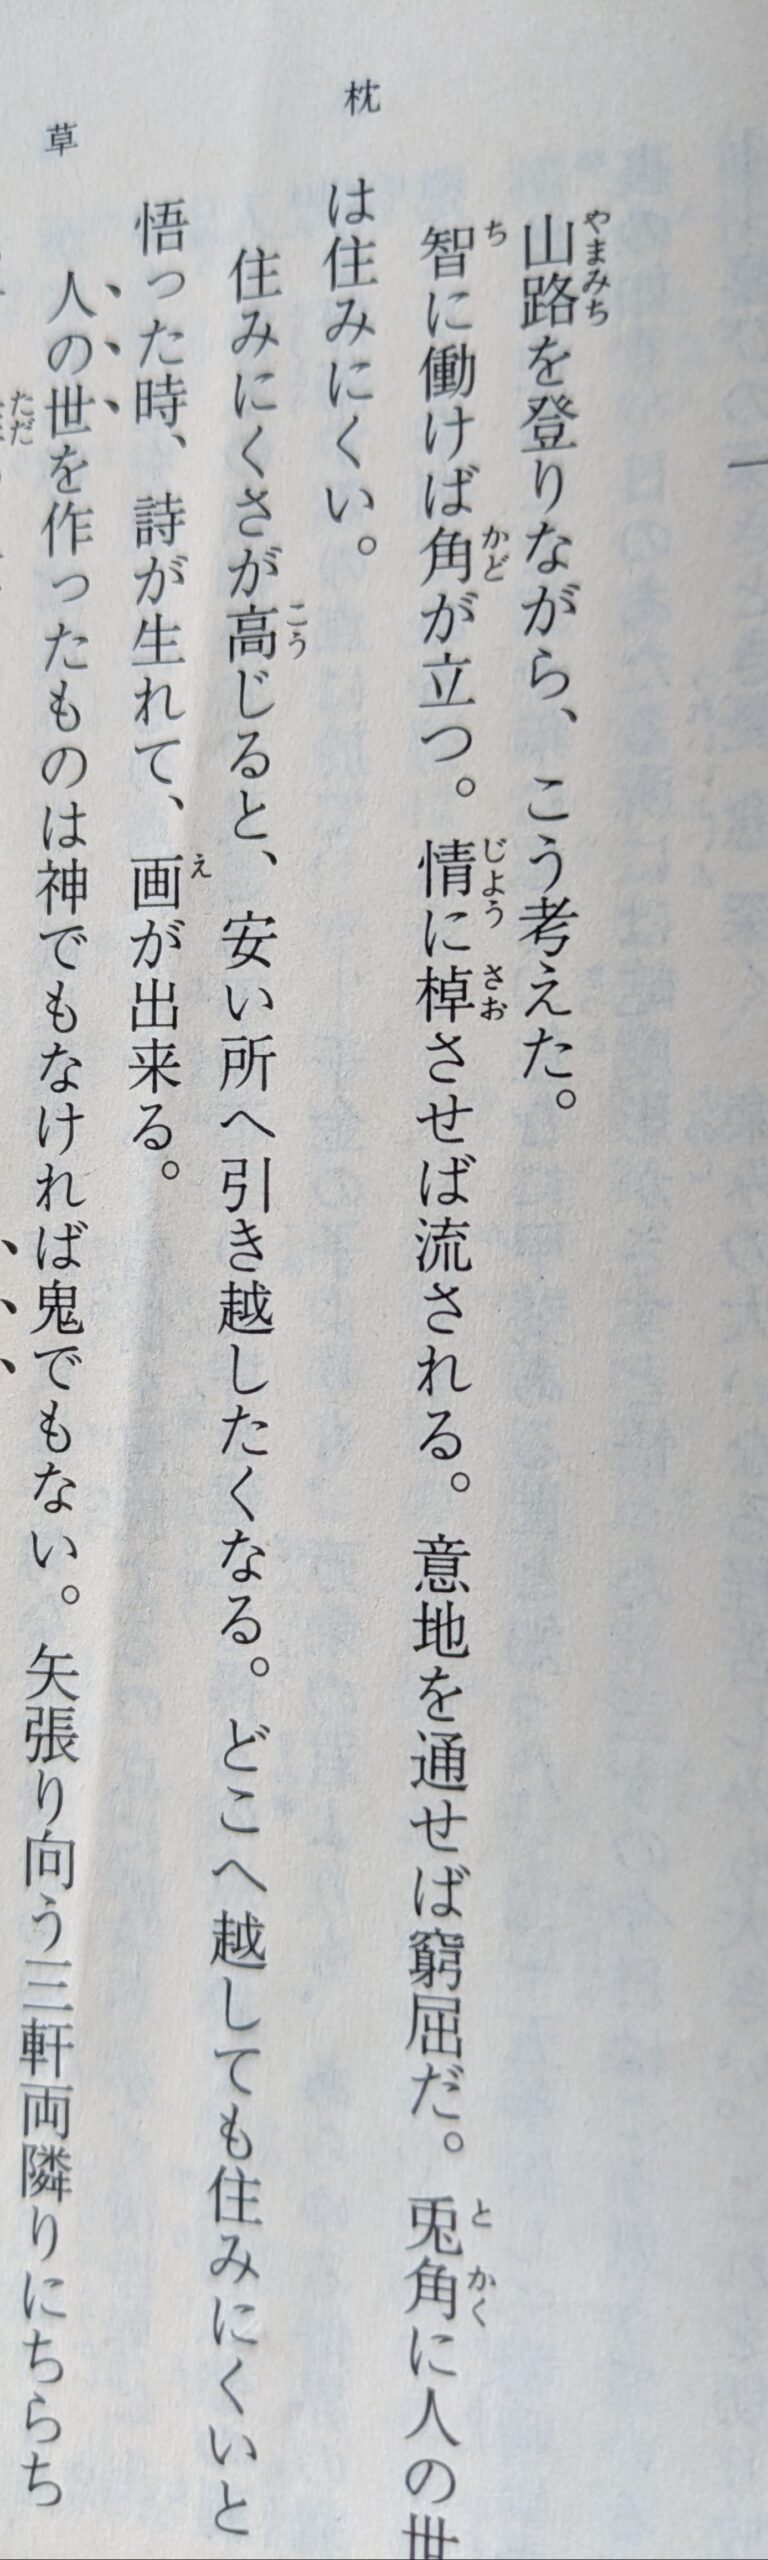 一
山路を登りながら、こう考えた。
智に働けば角が立つ。情に棹させば流される。意地を通せば窮屈だ。兎角に人の世
は住みにくい。
住みにくさが高じると、安い所へ引き越したくなる。どこへ越しても住みにくいと
悟った時、詩が生れて、画が出来る。
人の世を作ったものは神でもなければ鬼でもない。矢張り向う三軒両隣りにちらち
枕草